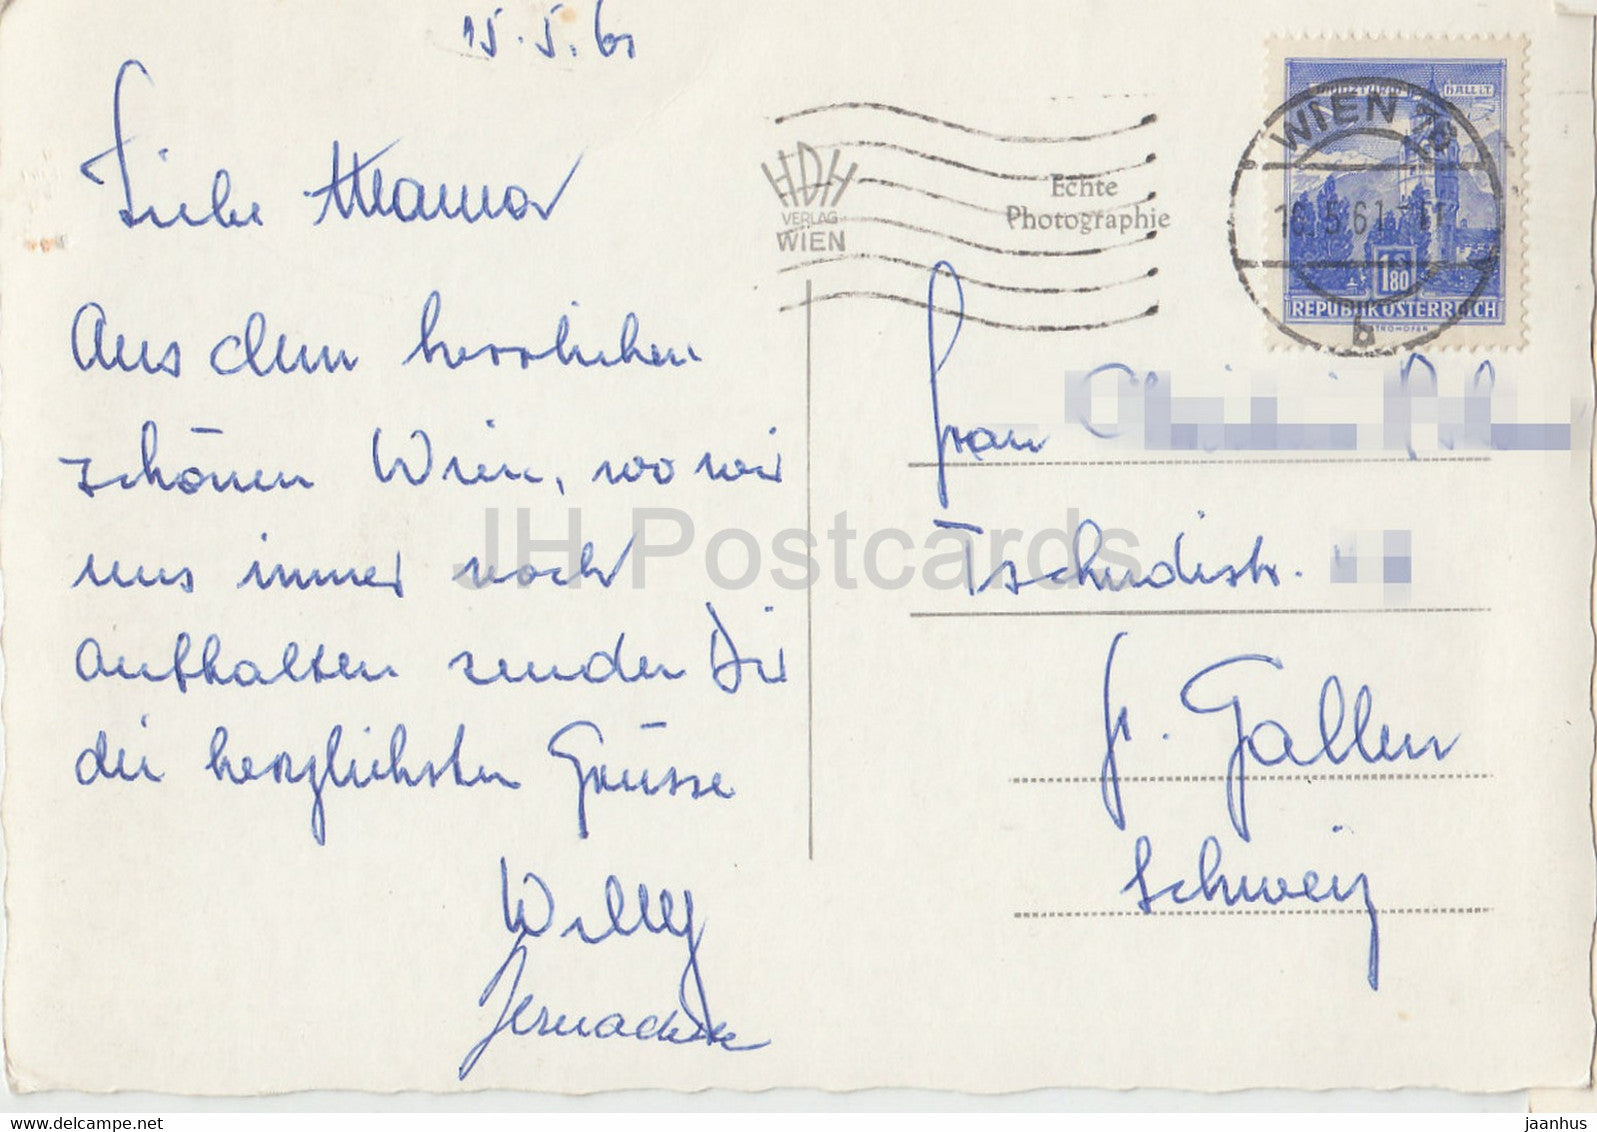 15.5.61
Liebe Mama
Aus dem herrlichen
schönen Wien, wo wir
uns immer noch
aufhalten senden Dir
die herzlichsten Grüsse
Willy
HDH
VERLAG
WIEN
Echte
Photographie
WIEN
16.5.61-11
b
HALL I.T.
1 80
REPUBLIK ÖSTERREICH
Frau
Tschudistr.
St. Gallen
Schweiz
JH Postcards
jaanhus